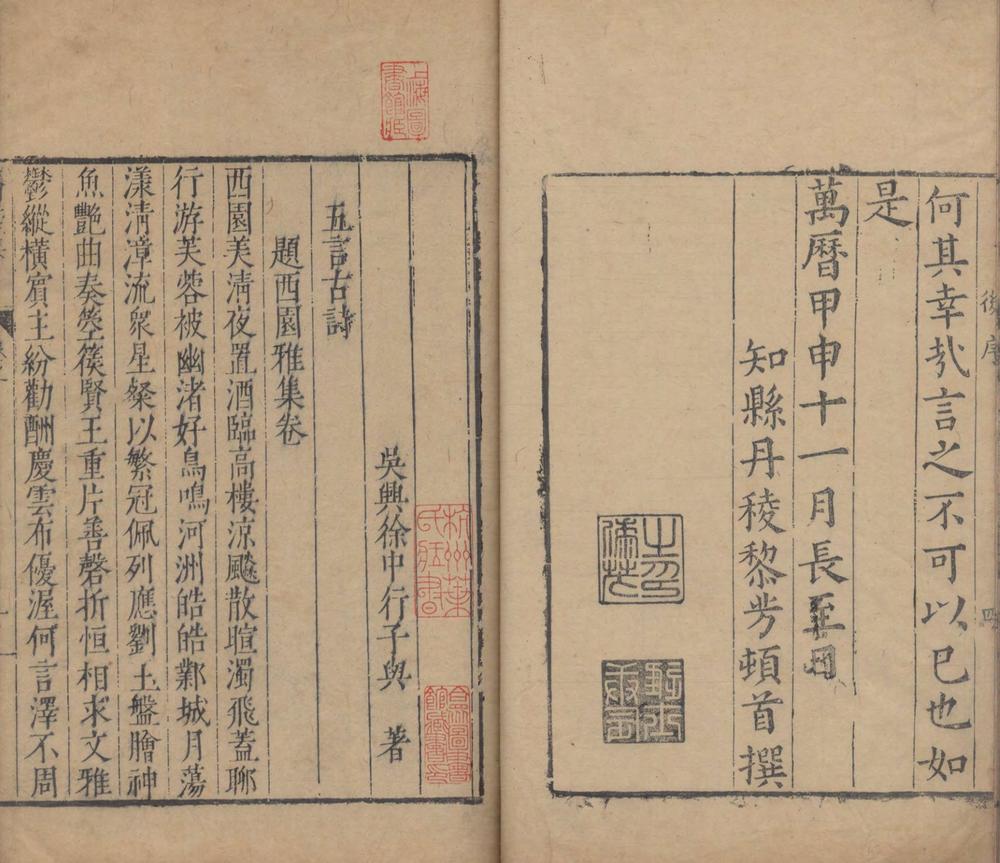 後序
四
何其幸哉言之不可以已也如
是
萬曆甲申十一月長至日
知縣丹稜黎芳頓首撰
上海圖書館藏
吳興徐中行子與 著
五言古詩
題西園雅集卷
西園美清夜置酒臨高樓涼飈散暄濁飛蓋聊
行游芙蓉被幽渚好鳥鳴河洲皓皓鄴城月蕩
漾清漳流衆星粲以繁冠佩列應劉玉盤膾神
魚艷曲奏箜篌賢王重片善磬折恒相求文雅
鬱縱橫賓主紛勸酬慶雲布優渥何言澤不周